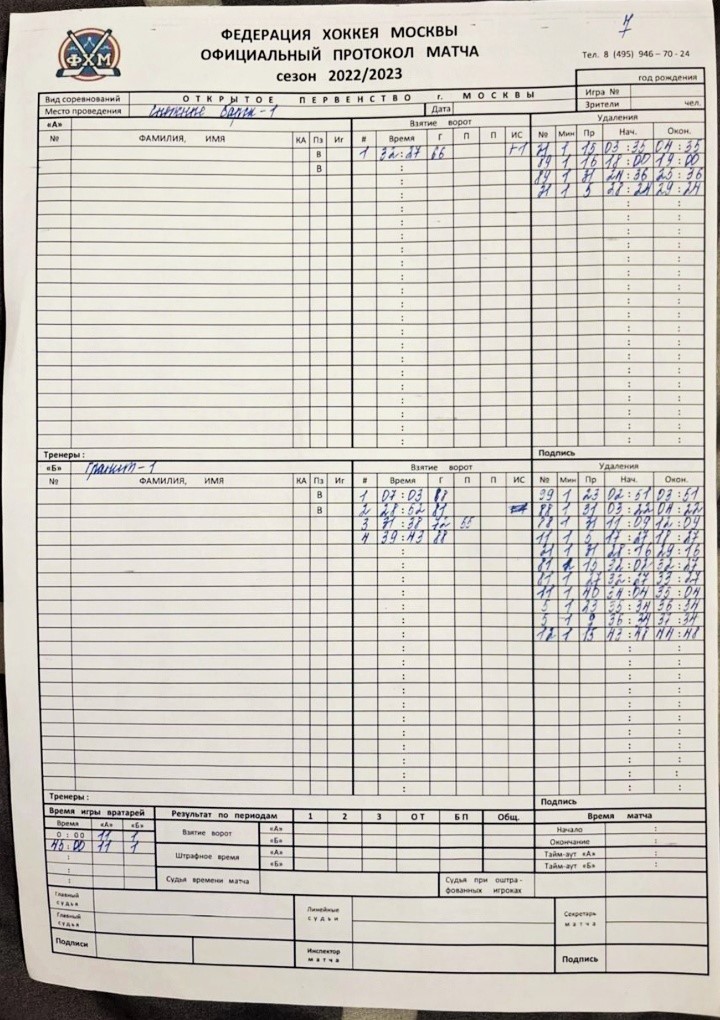 7
ФХМ
ФЕДЕРАЦИЯ ХОККЕЯ МОСКВЫ
ОФИЦИАЛЬНЫЙ ПРОТОКОЛ МАТЧА
сезон 2022/2023
Тел. 8 (495) 946 – 70 - 24
год рождения
Вид соревнований ОТКРЫТОЕ ПЕРВЕНСТВО г. МОСКВЫ Игра №
Место проведения Снежные Барсы-1 Дата Зрители чел.
«А» Взятие ворот Удаления
№ ФАМИЛИЯ, ИМЯ КА Пз Иг # Время Г П П ИС № Мин Пр Нач. Окон.
В 1 32:27 66 +1 21 1 15 03:35 04:35
В 89 1 16 18:00 19:00
89 1 31 24:36 25:36
21 1 5 28:24 29:24
Тренеры: Подпись
«Б» Гранит-1 Взятие ворот Удаления
№ ФАМИЛИЯ, ИМЯ КА Пз Иг # Время Г П П ИС № Мин Пр Нач. Окон.
В 1 07:03 88 99 1 23 02:51 03:51
В 2 28:52 81 88 1 31 03:22 04:22
3 31:38 72 55 88 1 31 11:09 12:09
4 39:43 88 11 1 5 17:27 18:27
21 1 31 28:16 29:16
81 15 32:02 32:27
81 1 27 32:27 33:27
11 1 40 34:04 35:04
5 1 23 35:34 36:34
5 1 9 36:34 37:34
12 1 15 43:48 44:48
Тренеры: Подпись
Время игры вратарей Результат по периодам 1 2 3 ОТ БП Общ. Время матча
Время «А» «Б» Взятие ворот «А» Начало :
0:00 11 1 «Б» Окончание :
45:00 11 1 Штрафное время «А» Тайм-аут «А» :
: «Б» Тайм-аут «Б» :
: Судья времени матча Судья при оштрафованных игроках
Главный судья Линейные судьи Секретарь матча
Главный судья
Подписи Инспектор матча Подпись